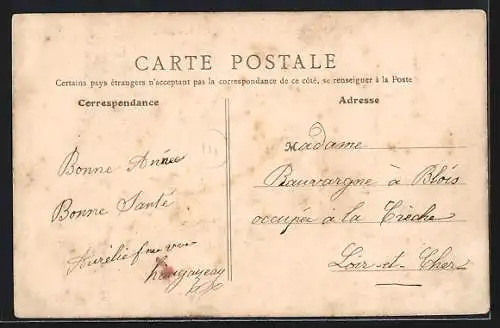 CARTE POSTALE
Certains pays étrangers n'acceptant pas la correspondance de ce côté, se renseigner à la Poste
Correspondance
Adresse
Bonne Année
Bonne Santé
Aurélie
Madame
Bauvargne à Blois
occupée a la Crèche
Loir-et-Cher